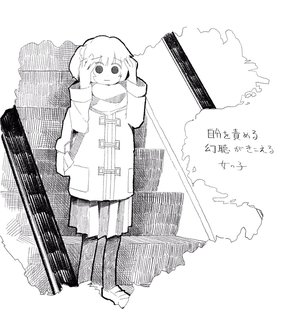 自分を責める
幻聴がきこえる
女の子